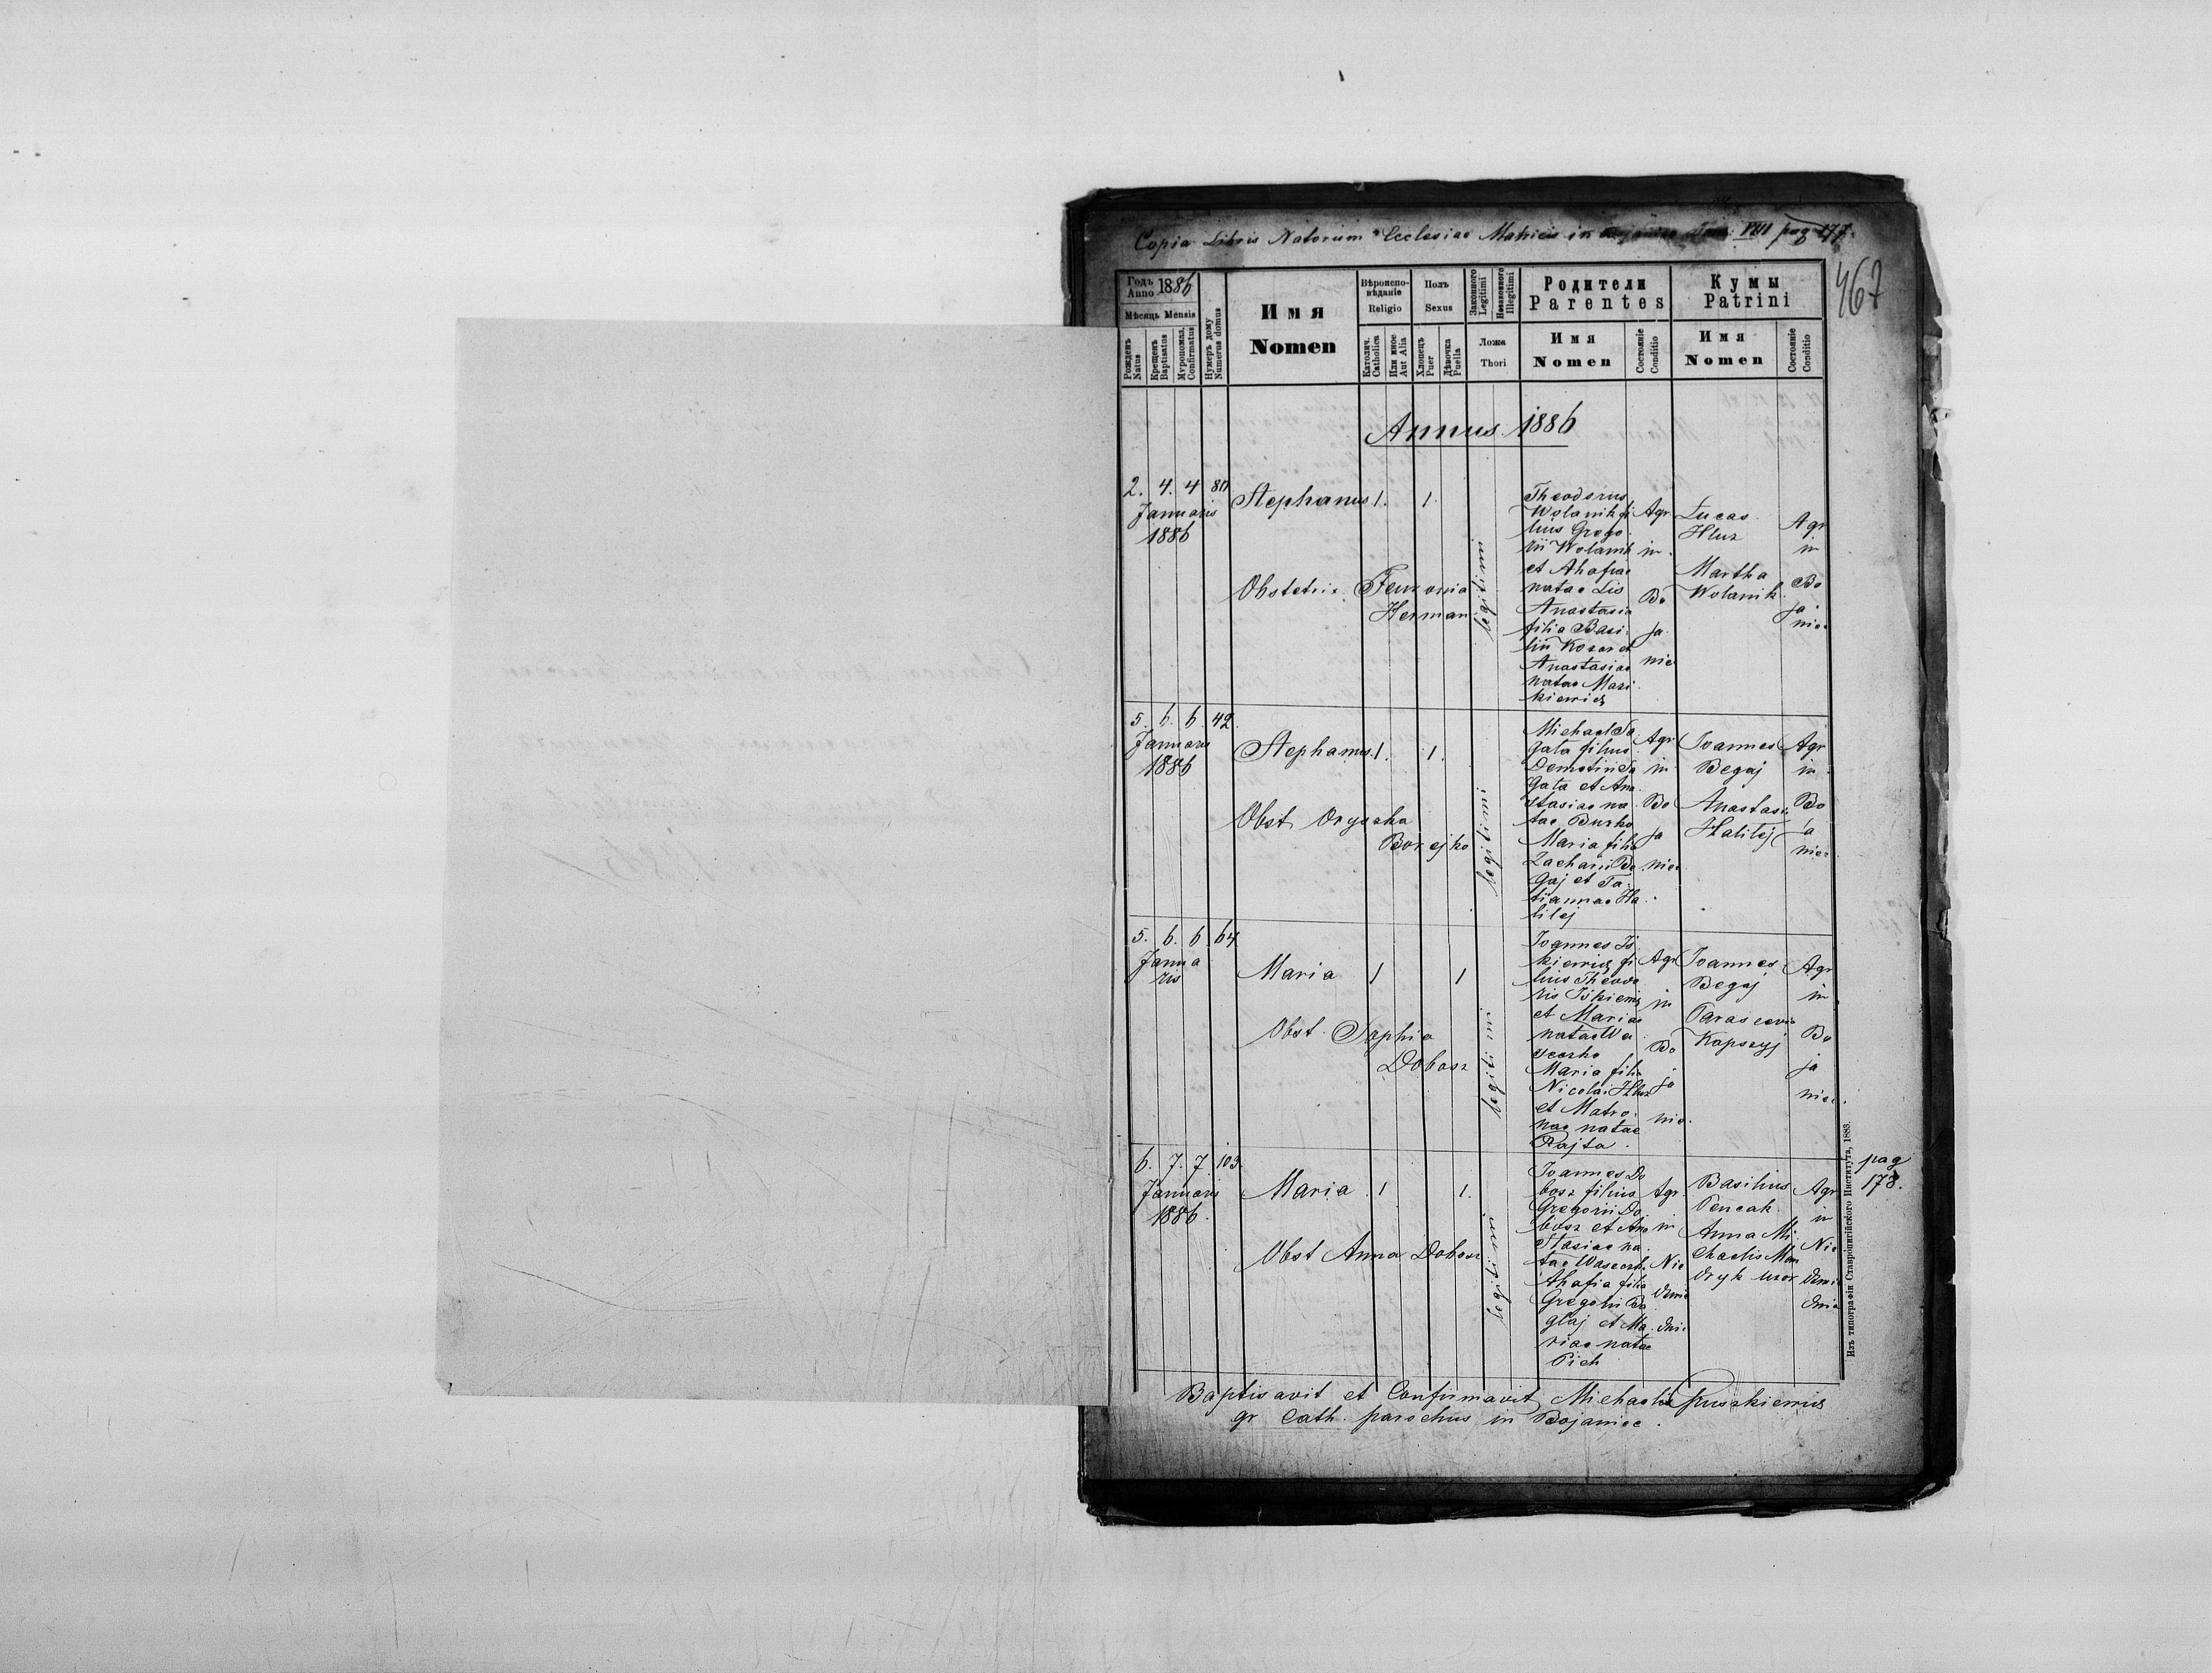 Copia Libris Natorum Ecclesiae Matricis in VIII pag 177.
467
Годъ
Anno 1886
Мѣсяць Mensis
Рожденъ
Natus
Крещенъ
Baptisatus
Мѵропомаз.
Confirmatus
Нумеръ дому
Numerus domus
Имя
Nomen
Вѣроиспо-
вѣданіе
Religio
Католич.
Catholica
Или иное
Aut Alia
Полъ
Sexus
Хлопецъ
Puer
Дѣвочка
Puella
Законного
Legitimi
Незаконного
Illegitimi
Ложа
Thori
Родители
Parentes
Имя
Nomen
Состояніе
Conditio
Кумы
Patrini
Имя
Nomen
Состояніе
Conditio
Annus 1886
2. 4. 4
Januaris
1886
Stephanus 1. 1.
Obstetrix
Herman
legitimi
Theodorus
Wolanik fi
lius Grego
rii Wolanik
et Ahafiae
natae Lis
Anastasia
filia Basi
lii Kozar et
Anastasiae
natae Mazi
kiewicz
Agr
in
Bo
ja
niec
Lucas
Hluz
Martha
Wolanik
Agr
in
Bo
ja
niec
5. 6. 6. 42
Januaris
1886
Stephanus 1. 1.
Obst Oryszka
Borejko
legitimi
Michael Sa
gata filius
Demetrii Sa
gata et Ana
stasiae na
tae Burko
Maria filia
Zacharii Be
gaj et Ta
tiannae Ha
lilej
Agr
in
Bo
ja
niec
Joannes
Begaj
Anastasia
Halilej
Agr
in
Bo
ja
niec
5. 6. 6. 64
Janua
ris
Maria 1 1
Obst. Sophia
Dobosz
legitimi
Joannes Is
kiewicz fi
lius Theodo
ris Iskiewicz
et Mariae
natae Wa
seczko
Maria filia
Nicolai Hluz
et Matro
nae natae
Rajta.
Agr
in
Bo
ja
nie.
Joannes
Begaj
Parascevia
Kapszyj
Agr
in
Bo
ja
niec.
6. 7. 7. 103.
Januaris
1886.
Maria 1 1.
Obst Anna Dobosz
legitimi
Joannes Do
bosz filius
Gregorii Do
bosz et Ana
stasiae na
tae Waseczk.
Ahafia filia
Gregorii Ba
glaj et Ma
riae natae
Pich
Agr.
in
Nie
dwie
dnia
Basilius
Pencak
Anna Mi
chaelis Man
dryk uxor
Agr
in
Nie
dwie
dnia
pag
178.
Изъ типографіи Ставропигійского Института, 1883.
Baptisavit et Confirmavit Michael
gr Cath. parochus in Bojaniec.